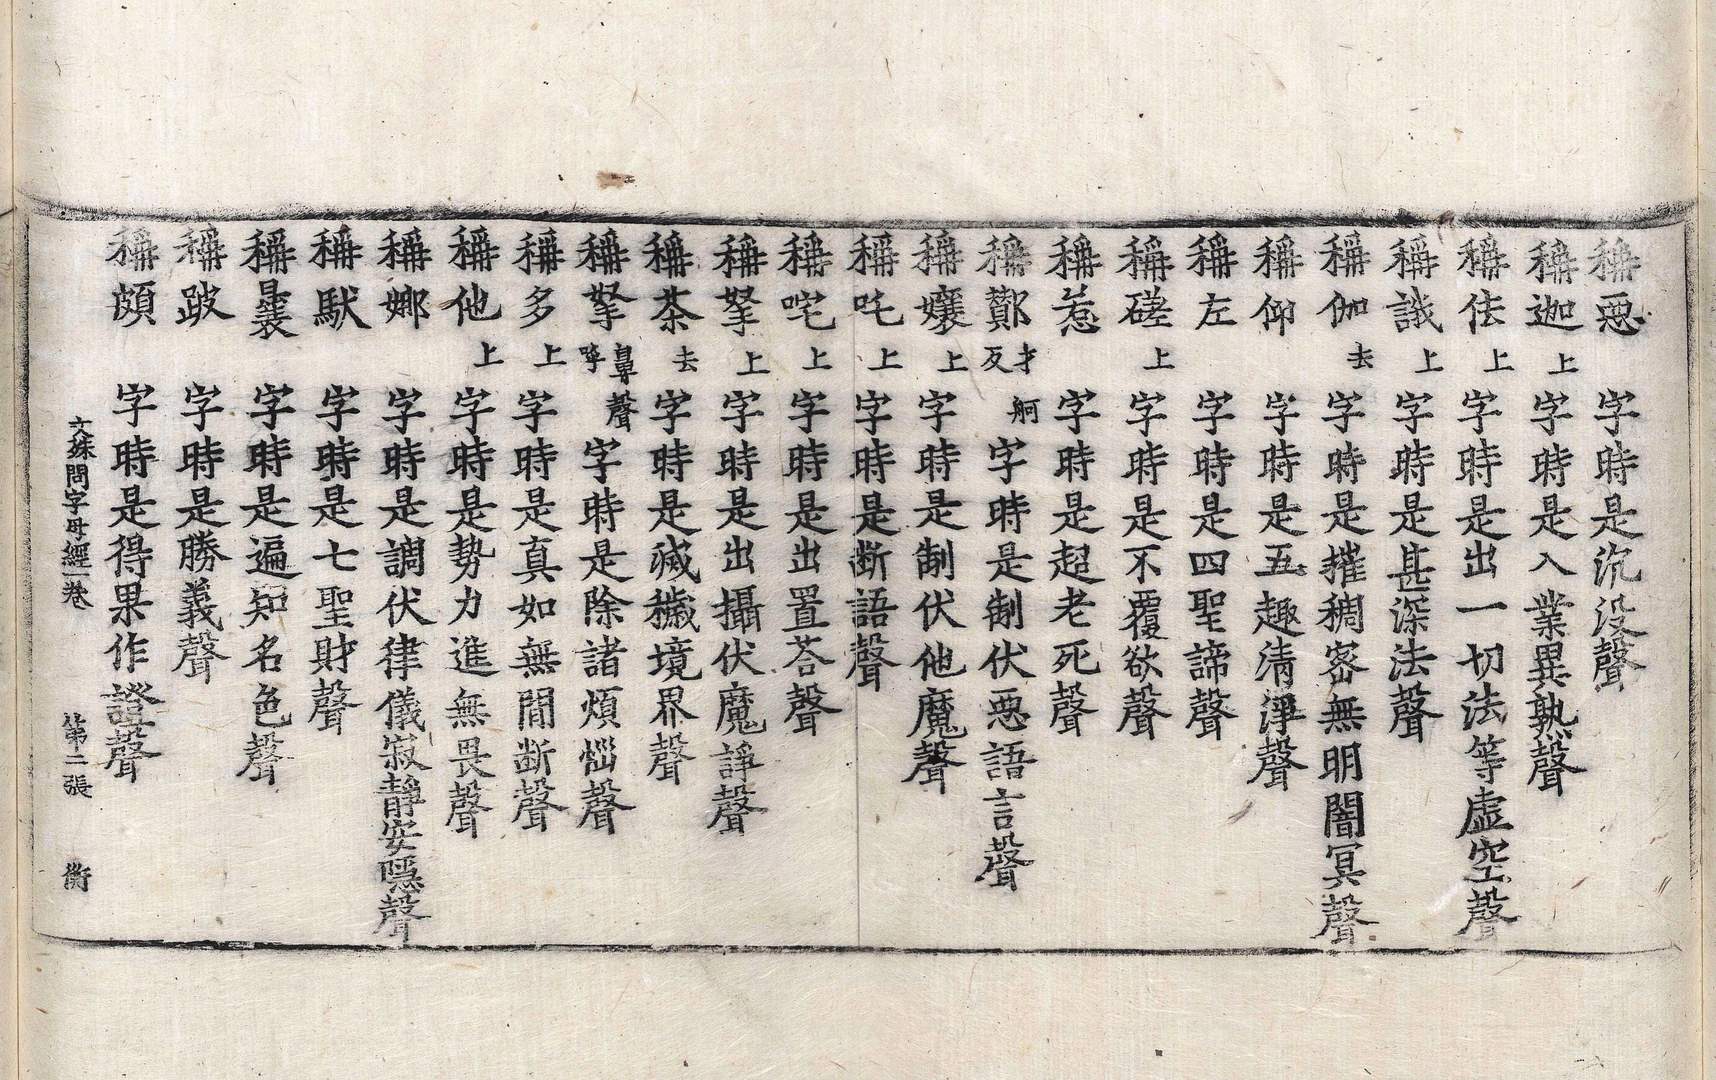 稱惡字時是沉没聲
稱迦上字時是入業異熟聲
稱佉上字時是出一切法等虛空聲
稱誐上字時是甚深法聲
稱伽去字時是摧稠密無明闇冥聲
稱仰字時是五趣清淨聲
稱左字時是四聖諦聲
稱磋上字時是不覆欲聲
稱惹字時是超老死聲
稱酇才舸反字時是制伏惡語言聲
稱孃上字時是制伏他魔聲
稱吒上字時是断語聲
稱咤上字時是出置荅聲
稱拏上字時是出攝伏魔諍聲
稱茶去字時是滅穢境界聲
稱拏鼻聲嚀字時是除諸煩惱聲
稱多上字時是真如無間断聲
稱他上字時是勢力進無畏聲
稱娜字時是調伏律儀寂靜安隱聲
稱馱字時是七聖財聲
稱曩字時是遍知名色聲
稱跛字時是勝義聲
稱頗字時是得果作證聲
文殊問字母經一卷 第二張 衡